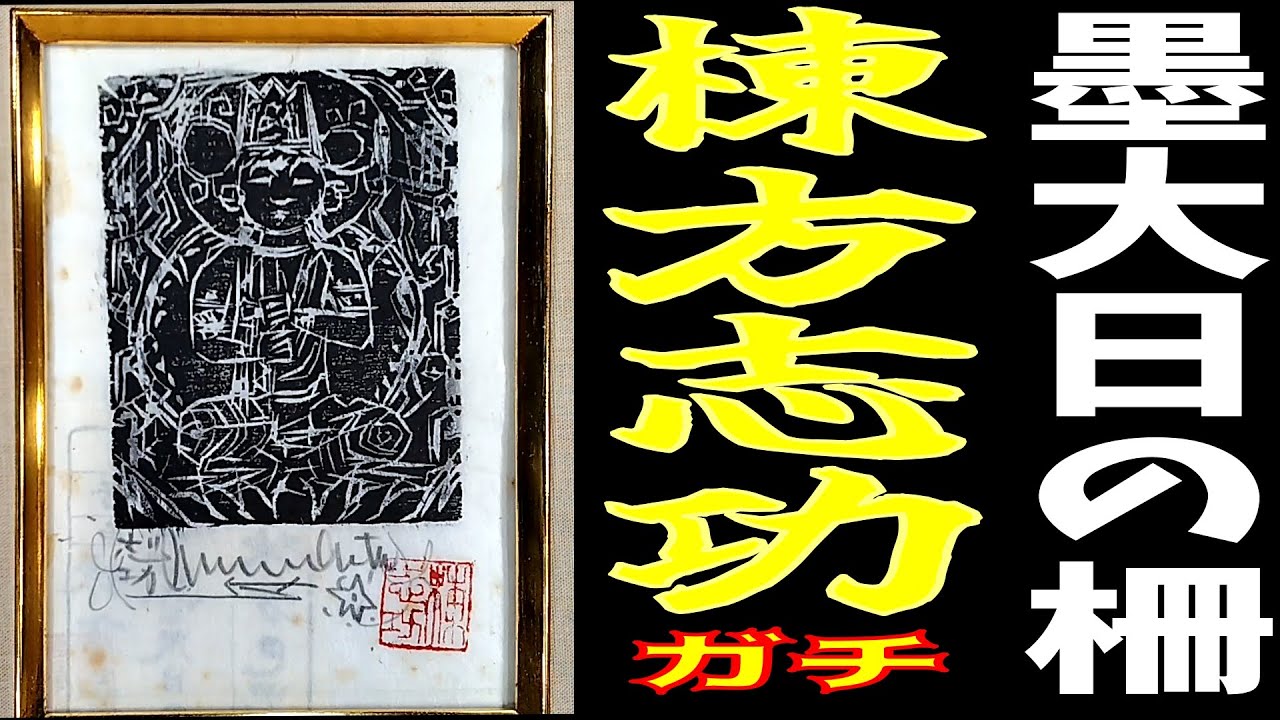 墨大日の柵
棟方志功
ガチ